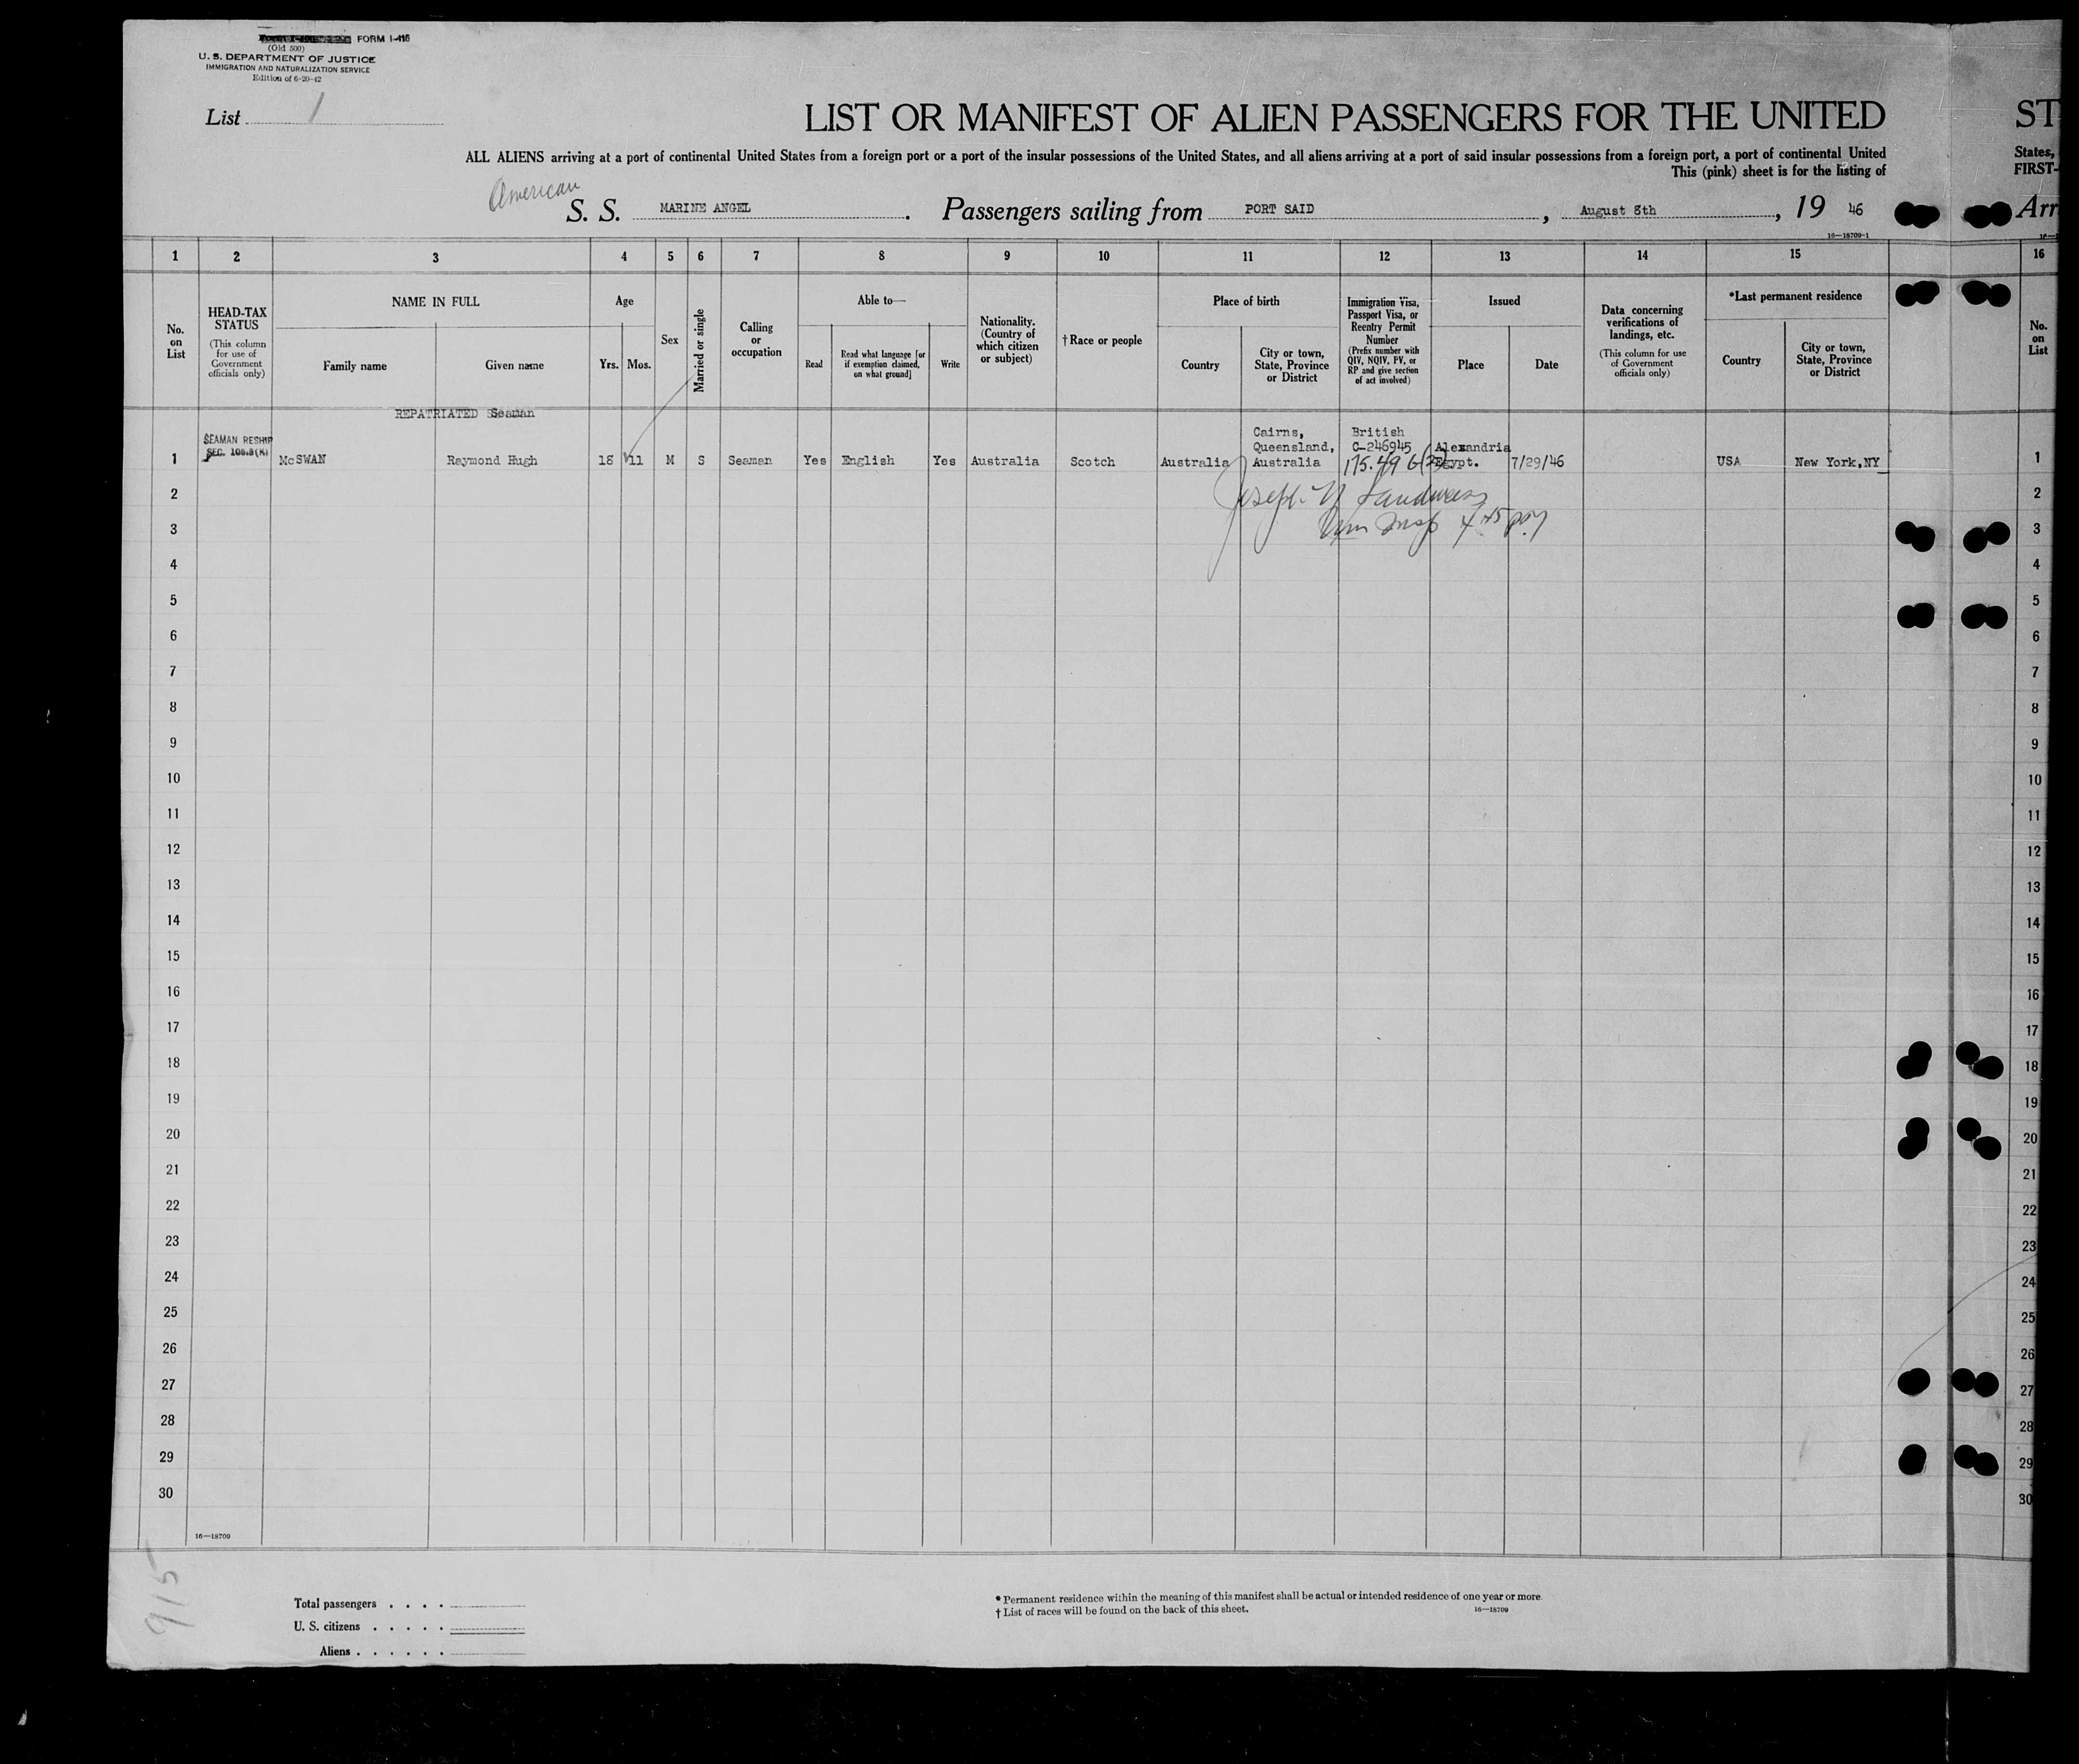 FORM I-415
(Old 500)
U. S. DEPARTMENT OF JUSTICE
IMMIGRATION AND NATURALIZATION SERVICE
Edition of 6-20-42
List 1
LIST OR MANIFEST OF ALIEN PASSENGERS FOR THE UNITED ST
ALL ALIENS arriving at a port of continental United States from a foreign port or a port of the insular possessions of the United States, and all aliens arriving at a port of said insular possessions from a foreign port, a port of continental United States,
This (pink) sheet is for the listing of FIRST-
American
S. S. MARINE ANGEL. Passengers sailing from PORT SAID, August 8th, 19 46 Arr
16—18709-1
1 2 3 4 5 6 7 8 9 10 11 12 13 14 15 16
No. on List
HEAD-TAX STATUS
(This column for use of Government officials only)
NAME IN FULL
Family name
Given name
Age
Yrs. Mos.
Sex
Married or single
Calling or occupation
Able to—
Read
Read what language [or if exemption claimed, on what ground]
Write
Nationality. (Country of which citizen or subject)
†Race or people
Place of birth
Country
City or town, State, Province or District
Immigration Visa, Passport Visa, or Reentry Permit Number
(Prefix number with QIV, NQIV, PV, or RP and give section of act involved)
Issued
Place
Date
Data concerning verifications of landings, etc.
(This column for use of Government officials only)
*Last permanent residence
Country
City or town, State, Province or District
No. on List
REPATRIATED Seaman
SEAMAN RESHIP
SEC. 108.3(K)
Cairns, British
Queensland, C-246945 Alexandria
1 McSWAN Raymond Hugh 18 11 M S Seaman Yes English Yes Australia Scotch Australia Australia 175.49 Egypt. 7/29/46 USA New York,NY 1
Joseph
2 2
Imm Insp
3 3
4 4
5 5
6 6
7 7
8 8
9 9
10 10
11 11
12 12
13 13
14 14
15 15
16 16
17 17
18 18
19 19
20 20
21 21
22 22
23 23
24 24
25 25
26 26
27 27
28 28
29 29
30 30
16—18709
915
Total passengers . . . .
U. S. citizens . . . . .
Aliens . . . . . .
* Permanent residence within the meaning of this manifest shall be actual or intended residence of one year or more.
† List of races will be found on the back of this sheet.
16—18709